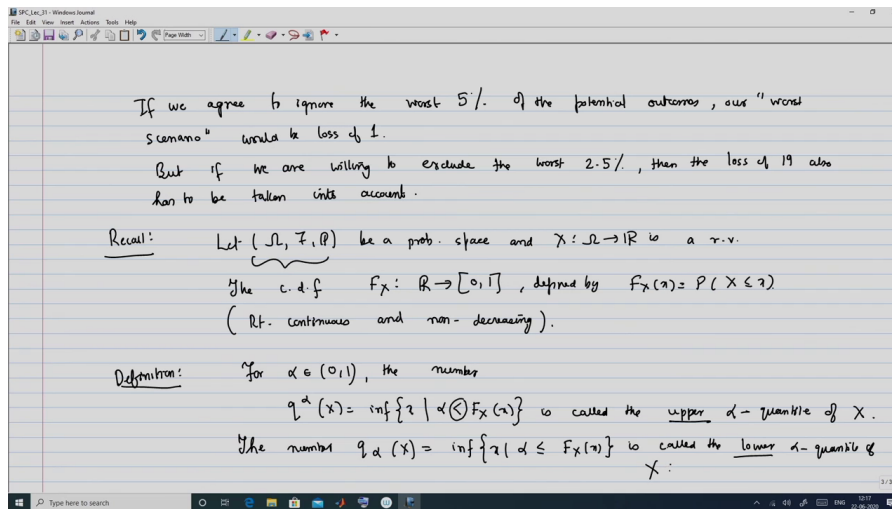 SPC_Lec_31 - Windows Journal
File Edit View Insert Actions Tools Help
Page Width
If we agree to ignore the worst 5% of the potential outcomes, our "worst
scenario" would be loss of 1.
But if we are willing to exclude the worst 2.5%, then the loss of 19 also
has to be taken into account.
Recall: Let (Ω, F, P) be a prob. space and X: Ω → IR is a r.v.
The c.d.f F_X: R → [0,1], defined by F_X(x) = P(X ≤ x)
(Rt. continuous and non-decreasing).
Definition: For α ∈ (0,1), the number
q^α(X) = inf{x | α < F_X(x)} is called the upper α-quantile of X.
The number q_α(X) = inf{x | α ≤ F_X(x)} is called the lower α-quantile of
X:
3/3
Type here to search
ENG
12:17
22-06-2020